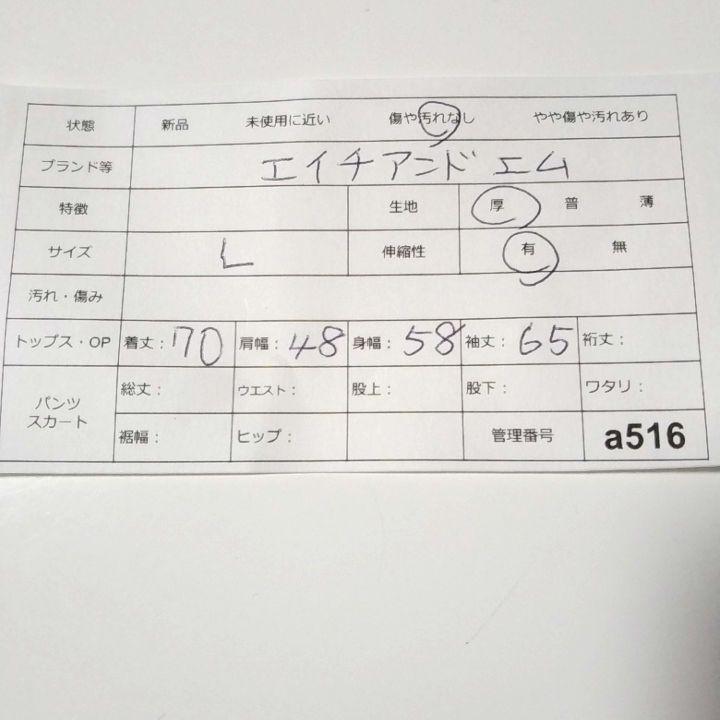 状態 新品 未使用に近い 傷や汚れなし やや傷や汚れあり
ブランド等 エイチアンドエム
特徴 生地 厚 普 薄
サイズ L 伸縮性 有 無
汚れ・傷み
トップス・OP 着丈：70 肩幅：48 身幅：58 袖丈：65 裄丈：
パンツ
スカート
総丈： ウエスト： 股上： 股下： ワタリ：
裾幅： ヒップ： 管理番号 a516